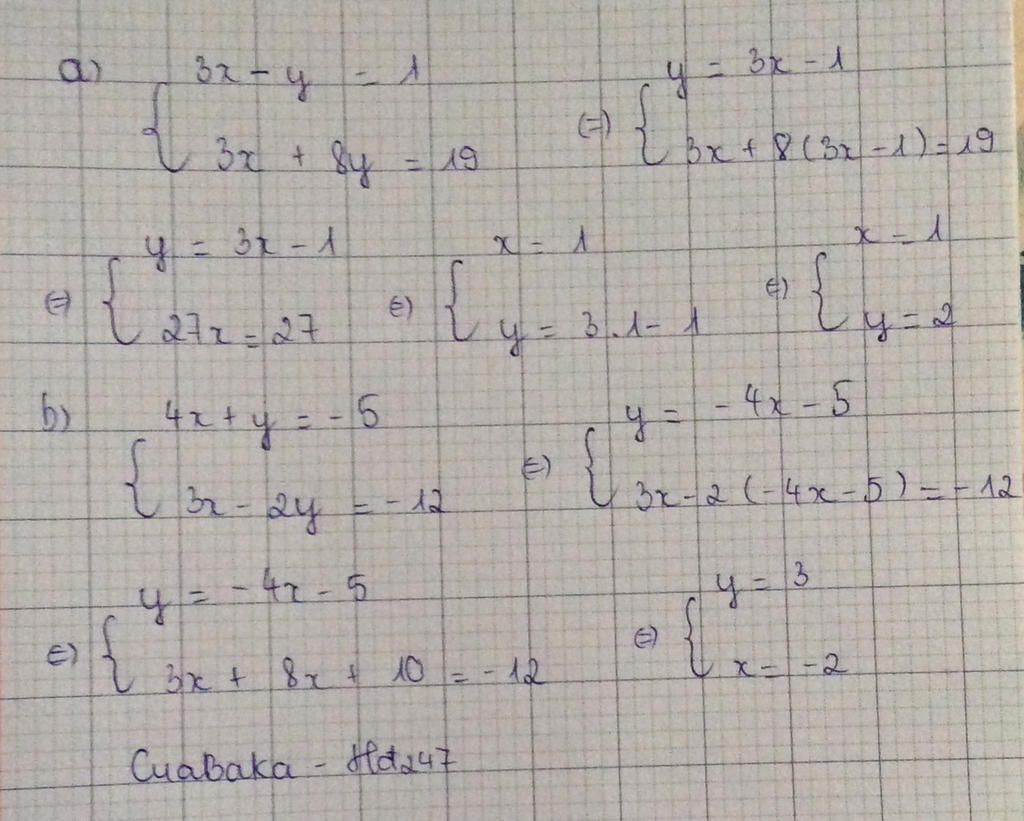 a) { 3x - y = 1 ; 3x + 8y = 19 ⇔ { y = 3x - 1 ; 3x + 8(3x - 1) = 19
⇔ { y = 3x - 1 ; 27x = 27 ⇔ { x = 1 ; y = 3.1 - 1 ⇔ { x = 1 ; y = 2
b) { 4x + y = -5 ; 3x - 2y = -12 ⇔ { y = -4x - 5 ; 3x - 2(-4x - 5) = -12
⇔ { y = -4x - 5 ; 3x + 8x + 10 = -12 ⇔ { y = 3 ; x = -2
CuaBaKa - Hd247